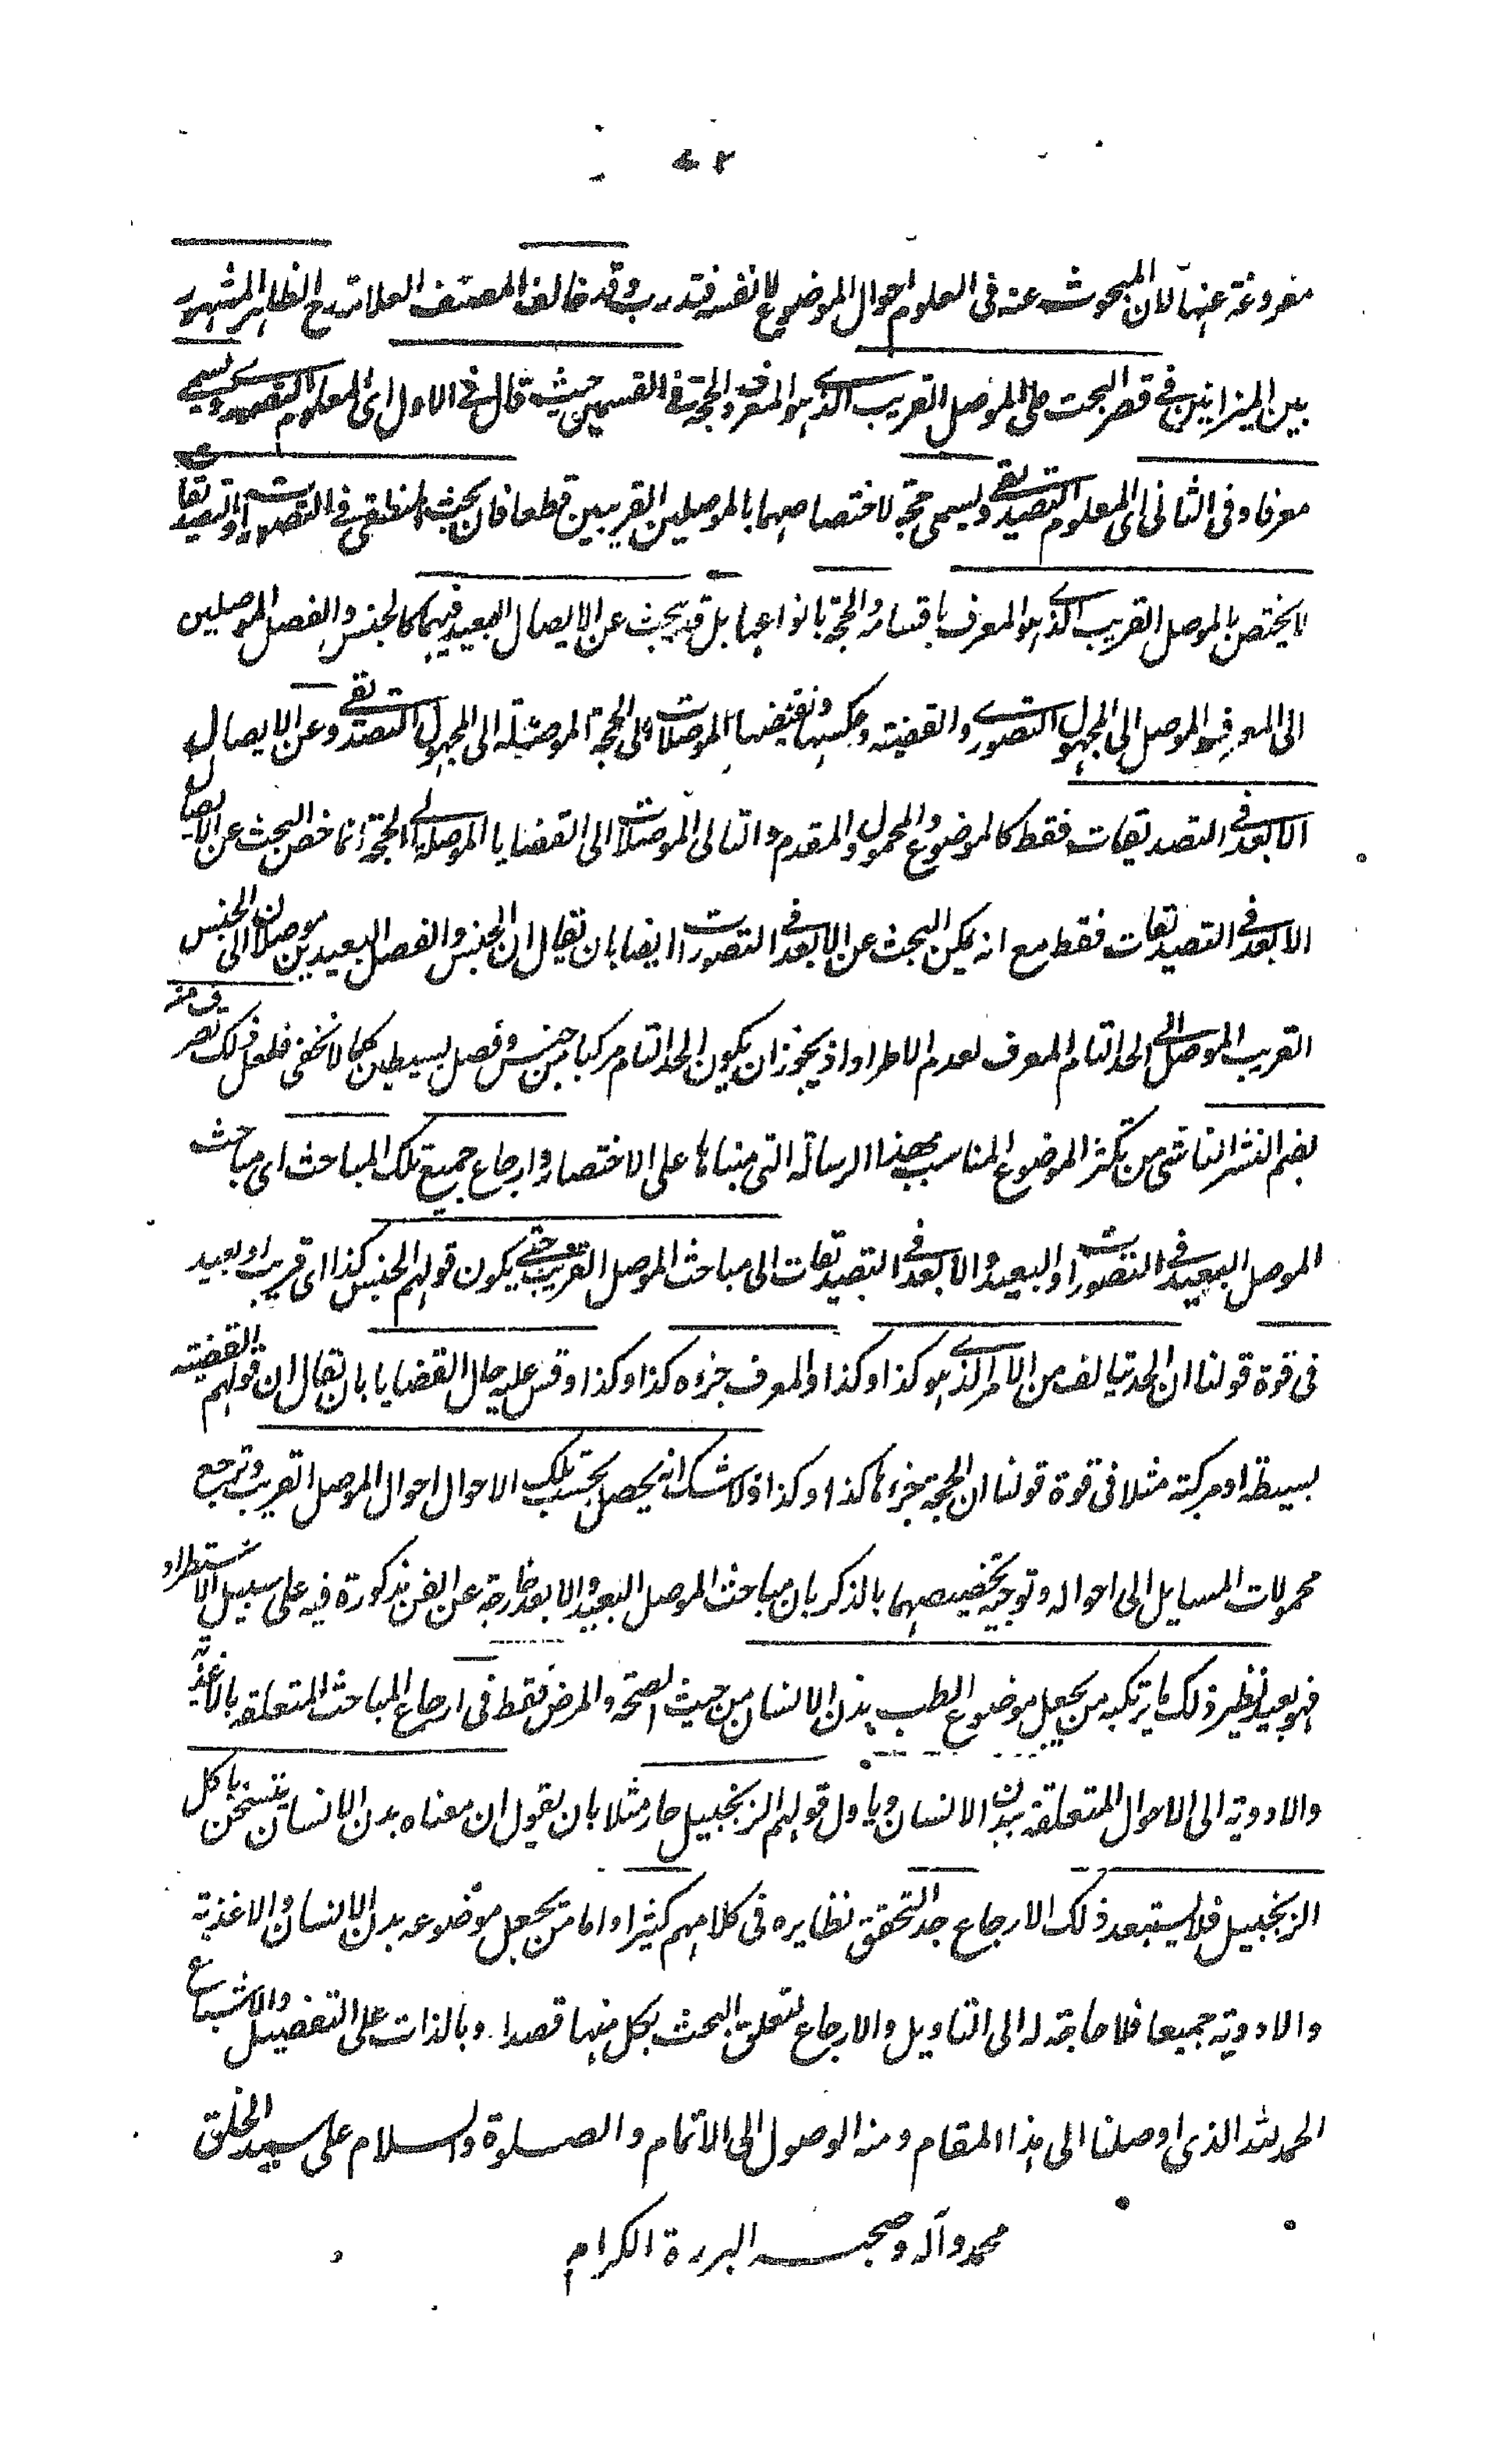 ٤٢
مفروغة عنها لان المبحوث عنه فى العلوم احوال الموضوع لا نفسه فتدرب وقد خالف المصنف العلامة مع الظاهر المشهور
بين الميزانيين فى قصر البحث على الموصل القريب الذى هو المعرف والحجة فى القسمين حيث قال فى الاول اى المعلوم التصورى ويسمى
معرفا وفى الثانى اى المعلوم التصديقى ويسمى حجة لاختصاصهما بالموصلين القريبين قطعا فان بحث المنطقى فى التصورات والتصديقات
لا يختص بالموصل القريب الذى هو المعرف باقسامه والحجة بانواعها بل قد يبحث عن الايصال البعيد فيهما كالجنس والفصل الموصلين
الى المعرف الموصل الى المجهول التصورى والقضية وعكسها ونقيضها الموصلات الى الحجة الموصلة الى المجهول التصديقى وعن الايصال
الابعد فى التصديقات فقط كالموضوع والمحمول والمقدم والتالى الموصلات الى القضايا الموصلة الى الحجة انما خص البحث عن الايصال
الابعد فى التصديقات فقط مع انه يمكن البحث عن الابعد فى التصورات ايضا بان يقال ان الجنس والفصل البعيدين موصلان الى الجنس
القريب الموصل الى الحد التام المعرف لعدم الاطراد اذ يجوز ان يكون الحد التام مركبا من جنس وفصل بسيطين كما لا يخفى فلعل ذلك تصرف منه
بضم النشر الناشى من تكثر الموضوع المناسب بهذا الرسالة التى مبناها على الاختصار وارجاع جميع تلك المباحث اى مباحث
الموصل البعيد فى التصورات او البعيد والابعد فى التصديقات الى مباحث الموصل القريب حتى يكون قولهم الجنس كذا اى قريب او بعيد
فى قوة قولنا ان الحد يتالف من الامر الذى هو كذا وكذا والمعرف جزءه كذا وكذا وقس عليه حال القضايا بان يقال ان قولهم القضية
بسيطة او مركبة مثلا فى قوة قولنا ان الحجة جزءها كذا وكذا ولا شك انه يحصل بحسب تلك الاحوال احوال الموصل القريب وترجع
محمولات المسايل الى احواله وتوجيه تخصيصهما بالذكر بان مباحث الموصل البعيد والابعد خارجة عن الفن مذكورة فيه على سبيل الاستطراد
فهو بعيد نظير ذلك ما يرتكبه من يجعل موضوع الطب بدن الانسان من حيث الصحة والمرض فقط فى ارجاع المباحث المتعلقه بالاغذية
والادوية الى الاحوال المتعلقة ببدن الانسان وياول قولهم الزنجبيل حار مثلا بان يقول ان معناه بدن الانسان يتسخن باكل
الزنجبيل فلا يستبعد ذلك الارجاع جدا لتحقق نظايره فى كلامهم كثيرا واما من يجعل موضوعه بدن الانسان والاغذية
والادوية جميعا فلا حاجة له الى التاويل والارجاع لتعلق البحث بكل منها قصدا وبالذات على التفصيل والاشباع
الحمد لله الذى اوصلنا الى هذا المقام ومنه الوصول الى الاتمام والصلوة والسلام على سيد الخلق
محمد وآله وصحبه البررة الكرام